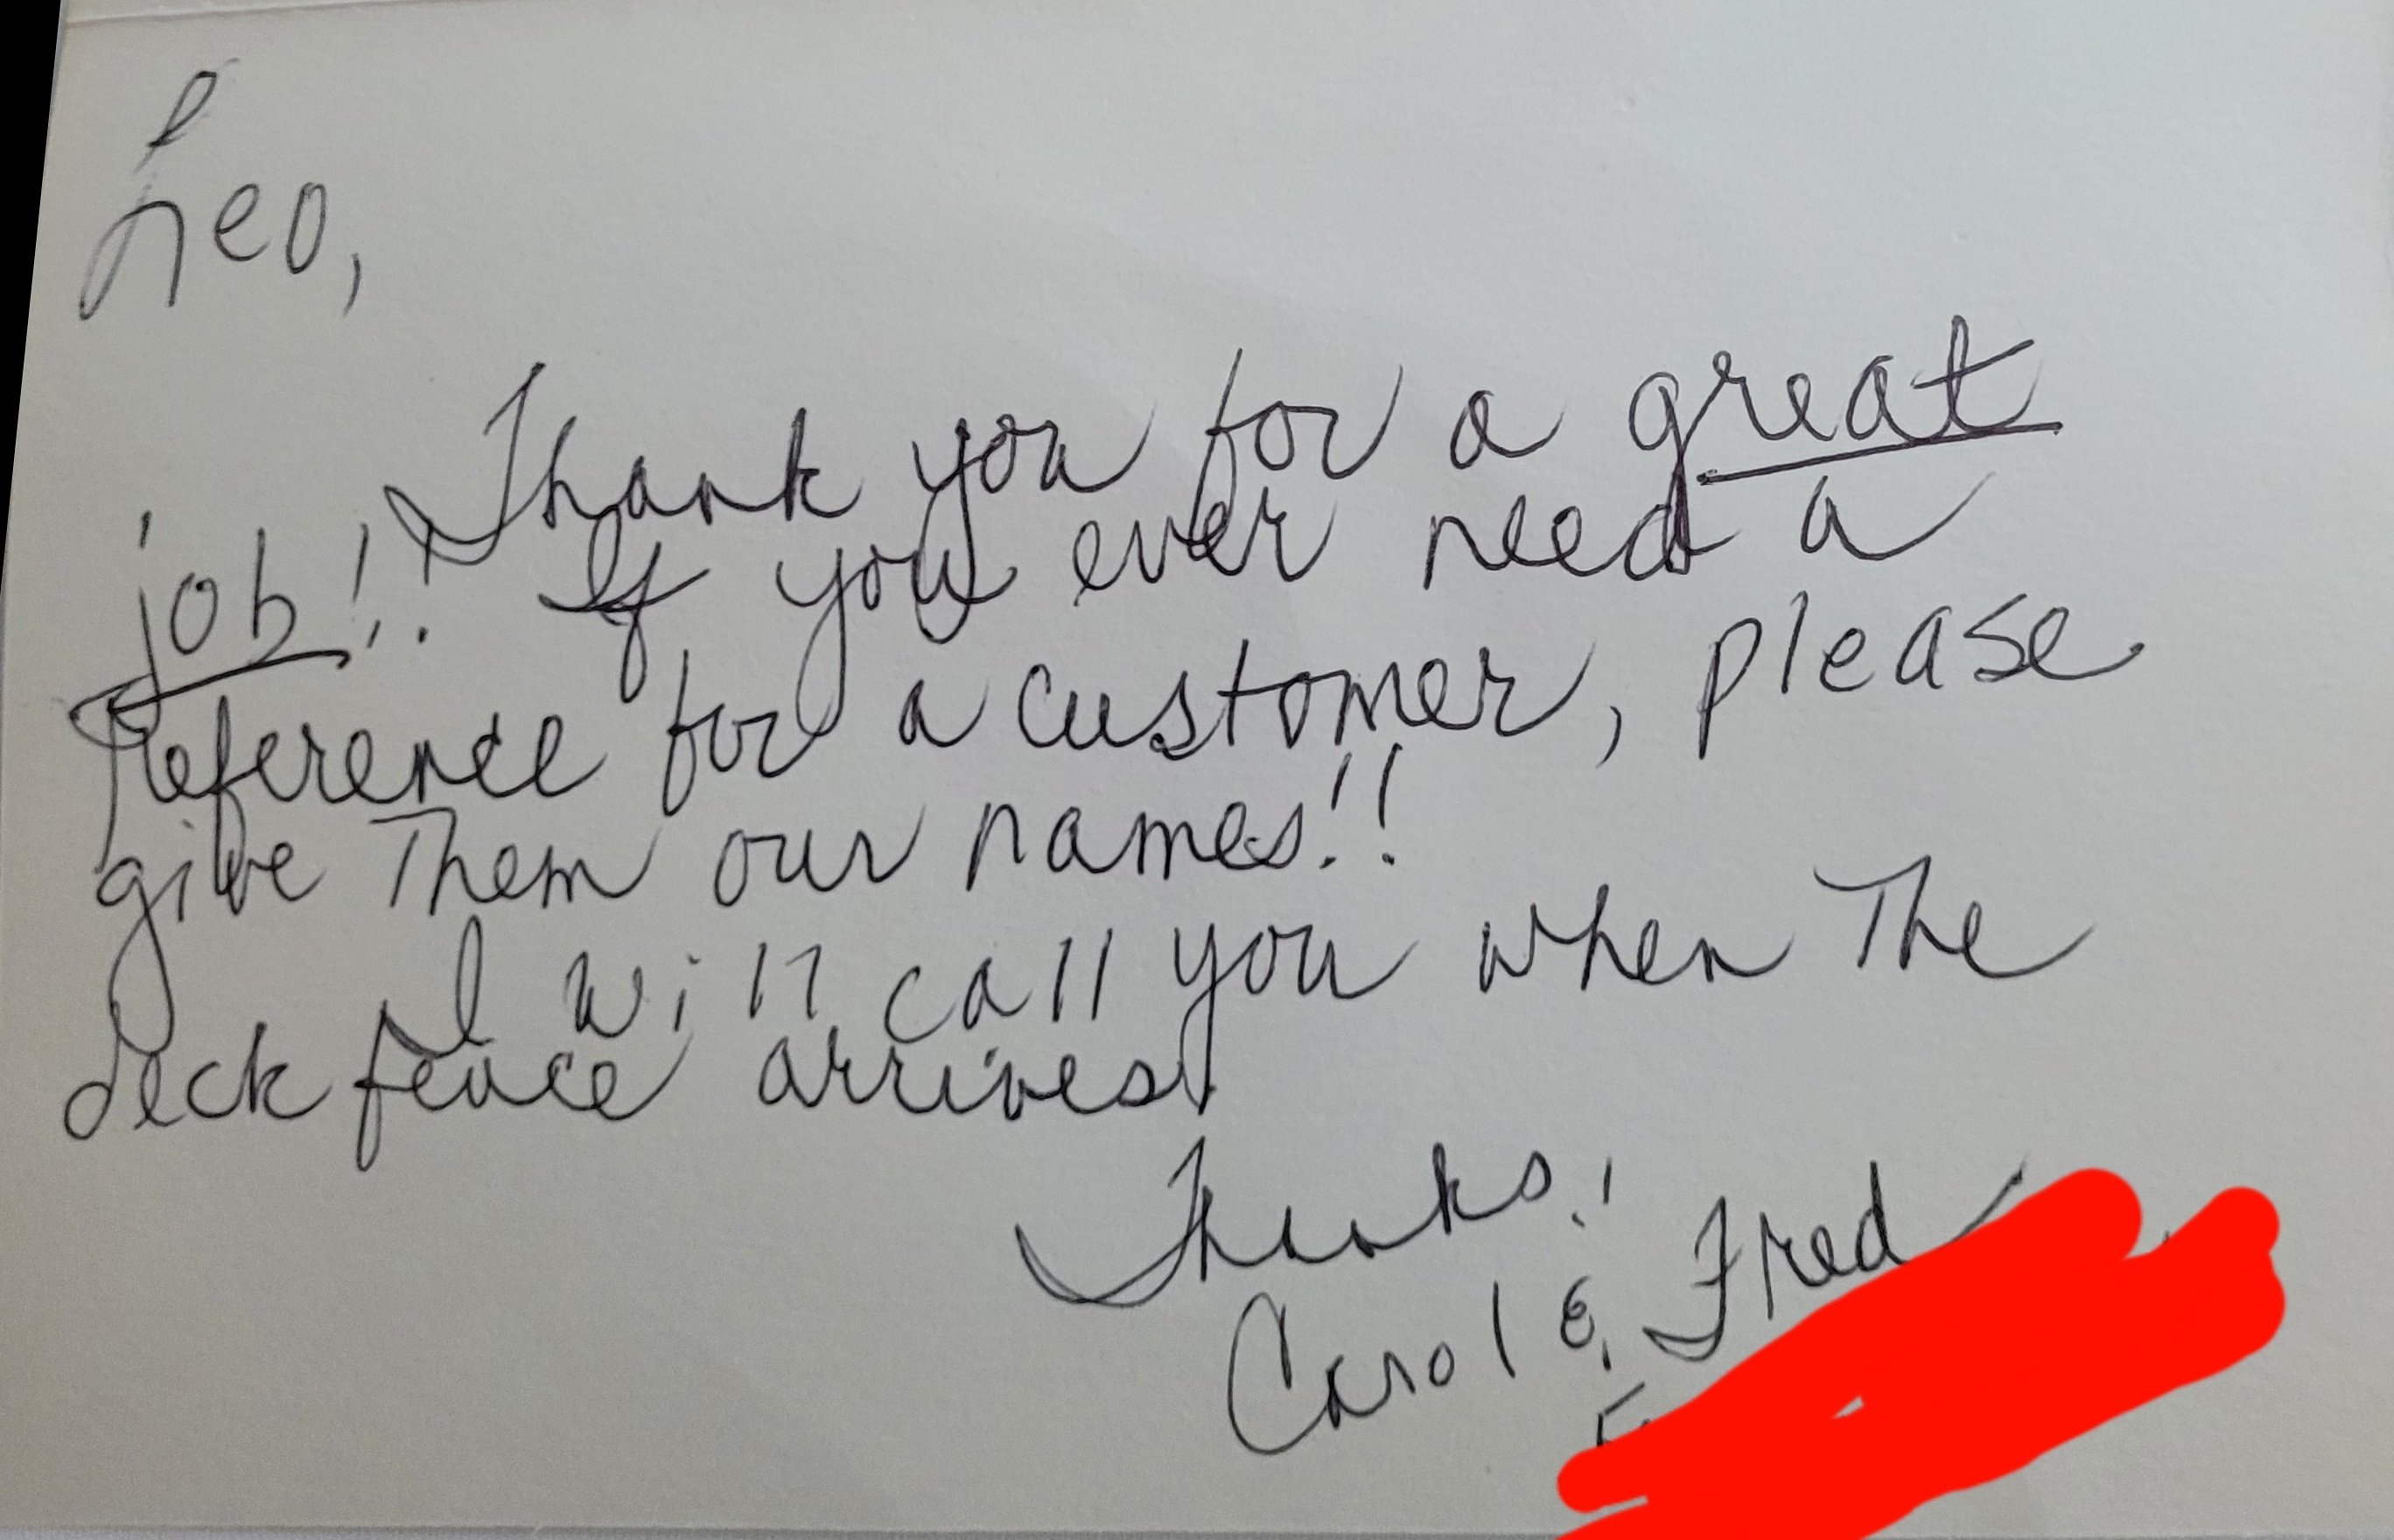 Leo,
Thank you for a great
job!! If you ever need a
reference for a customer, please
give Them our names!!
I will call you when The
deck fence arrives.
Thanks!
Carol & Fred